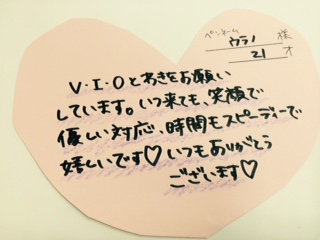 ペンネーム ウラノ 様
21 才
V・I・Oとわきをお願い
しています。いつ来ても、笑顔で
優しい対応、時間もスピーディーで
嬉しいです♡いつもありがとう
ございます♡